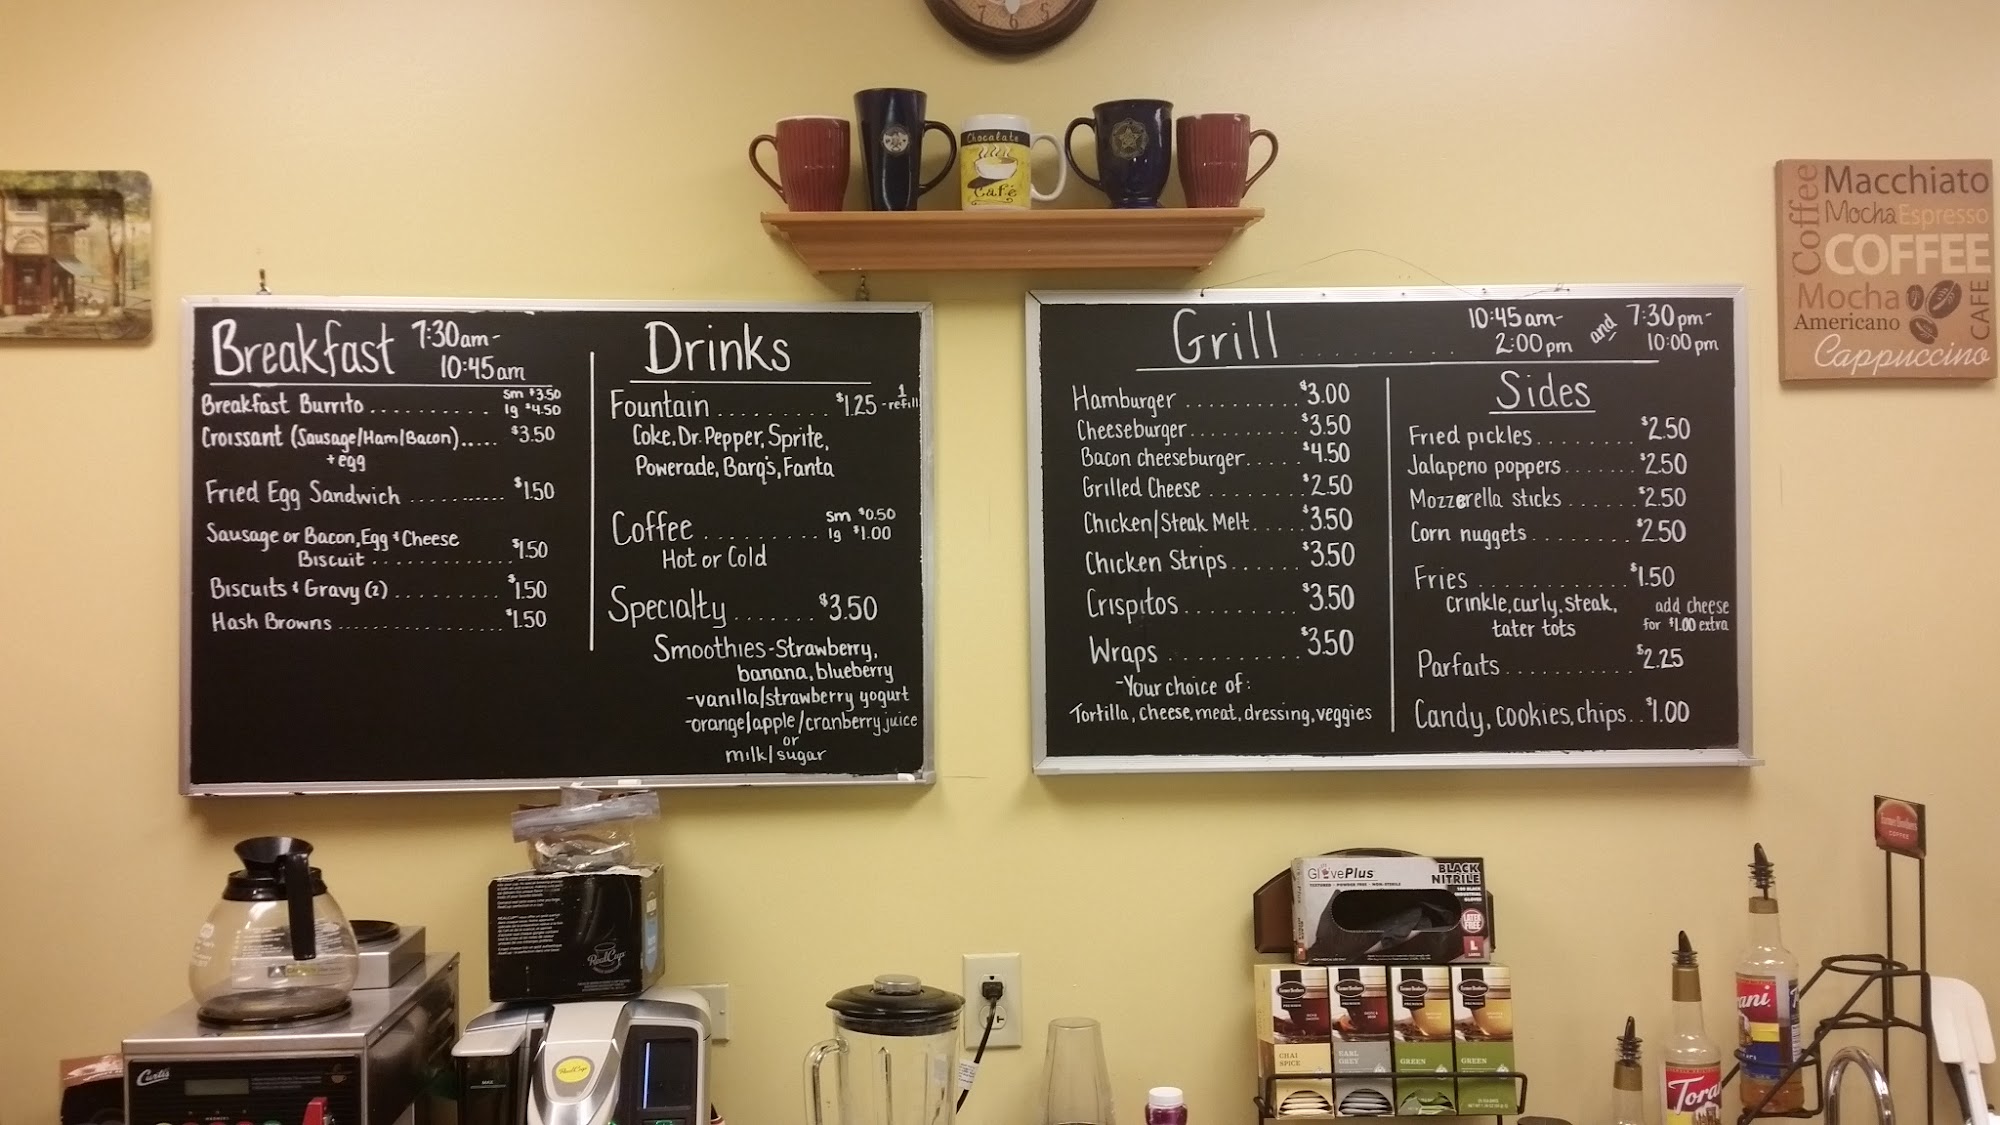 7 6 5
Chocolate
Café
Coffee
Macchiato
Mocha Espresso
COFFEE
Mocha
Americano
CAFE
Cappuccino
Breakfast 7:30am-
10:45am
Breakfast Burrito .......... sm $3.50
lg $4.50
Croissant (Sausage/Ham/Bacon)..... $3.50
+ egg
Fried Egg Sandwich .......... $1.50
Sausage or Bacon, Egg & Cheese
Biscuit ............. $1.50
Biscuits & Gravy (2) ......... $1.50
Hash Browns ................. $1.50
Drinks
Fountain ......... $1.25 - 1 refill
Coke, Dr. Pepper, Sprite,
Powerade, Barq's, Fanta
Coffee .......... sm $0.50
lg $1.00
Hot or Cold
Specialty ....... $3.50
Smoothies - Strawberry,
banana, blueberry
-vanilla/strawberry yogurt
-orange/apple/cranberry juice
or
milk/sugar
Grill .......... 10:45am-
2:00pm and 7:30pm-
10:00pm
Hamburger .......... $3.00
Cheeseburger .......... $3.50
Bacon cheeseburger..... $4.50
Grilled Cheese ........ $2.50
Chicken/Steak Melt..... $3.50
Chicken Strips....... $3.50
Crispitos .......... $3.50
Wraps ........... $3.50
-Your choice of:
Tortilla, cheese, meat, dressing, veggies
Sides
Fried pickles ........ $2.50
Jalapeno poppers ...... $2.50
Mozzerella sticks ...... $2.50
Corn nuggets ......... $2.50
Fries ............ $1.50
crinkle, curly, steak,
tater tots
add cheese
for $1.00 extra
Parfaits .......... $2.25
Candy, cookies, chips.. $1.00
RealCup
Curtis
MAX
RealCup
GlovePlus
TEXTURED • POWDER FREE • NON-STERILE
BLACK
NITRILE
LATEX
FREE
L
Farmer Brothers
COFFEE
CHAI
SPICE
EARL
GREY
GREEN
GREEN
Torani
ani